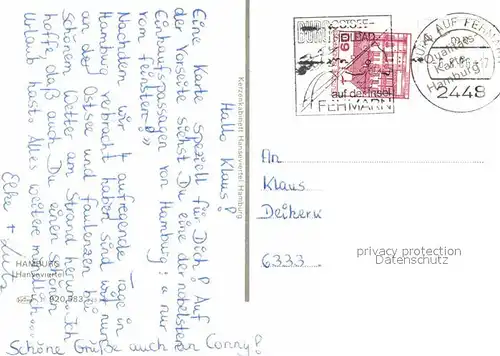 Hallo Klaus!
Eine Karte speziell für Dich! Auf
der Vorseite siehst Du eine der nobelsten
Einkaufspassagen von Hamburg: "nur
vom feinsten"!
Nachdem wir 4 aufregende Tage in
Hamburg verbracht haben sind wir nun
an der Ostsee und faulenzen bei
schönem Wetter am Strand herum. Ich
hoffe daß auch Du einen schönen
Urlaub hast. Alles weitere mündlich...
Elke + Lutz
Schöne Grüße auch an Conny!
HAMBURG
Hanseviertel
920.983
Kerzenkabinett Hanseviertel Hamburg
BURG OSTSEE-
HEILBAD
auf der Insel
FEHMARN
60
BURG AUF FEHMARN
Oldthing
Ansichtskarten
Hamburg
2448
An
Klaus
Deikerk
6333
privacy protection
Datenschutz